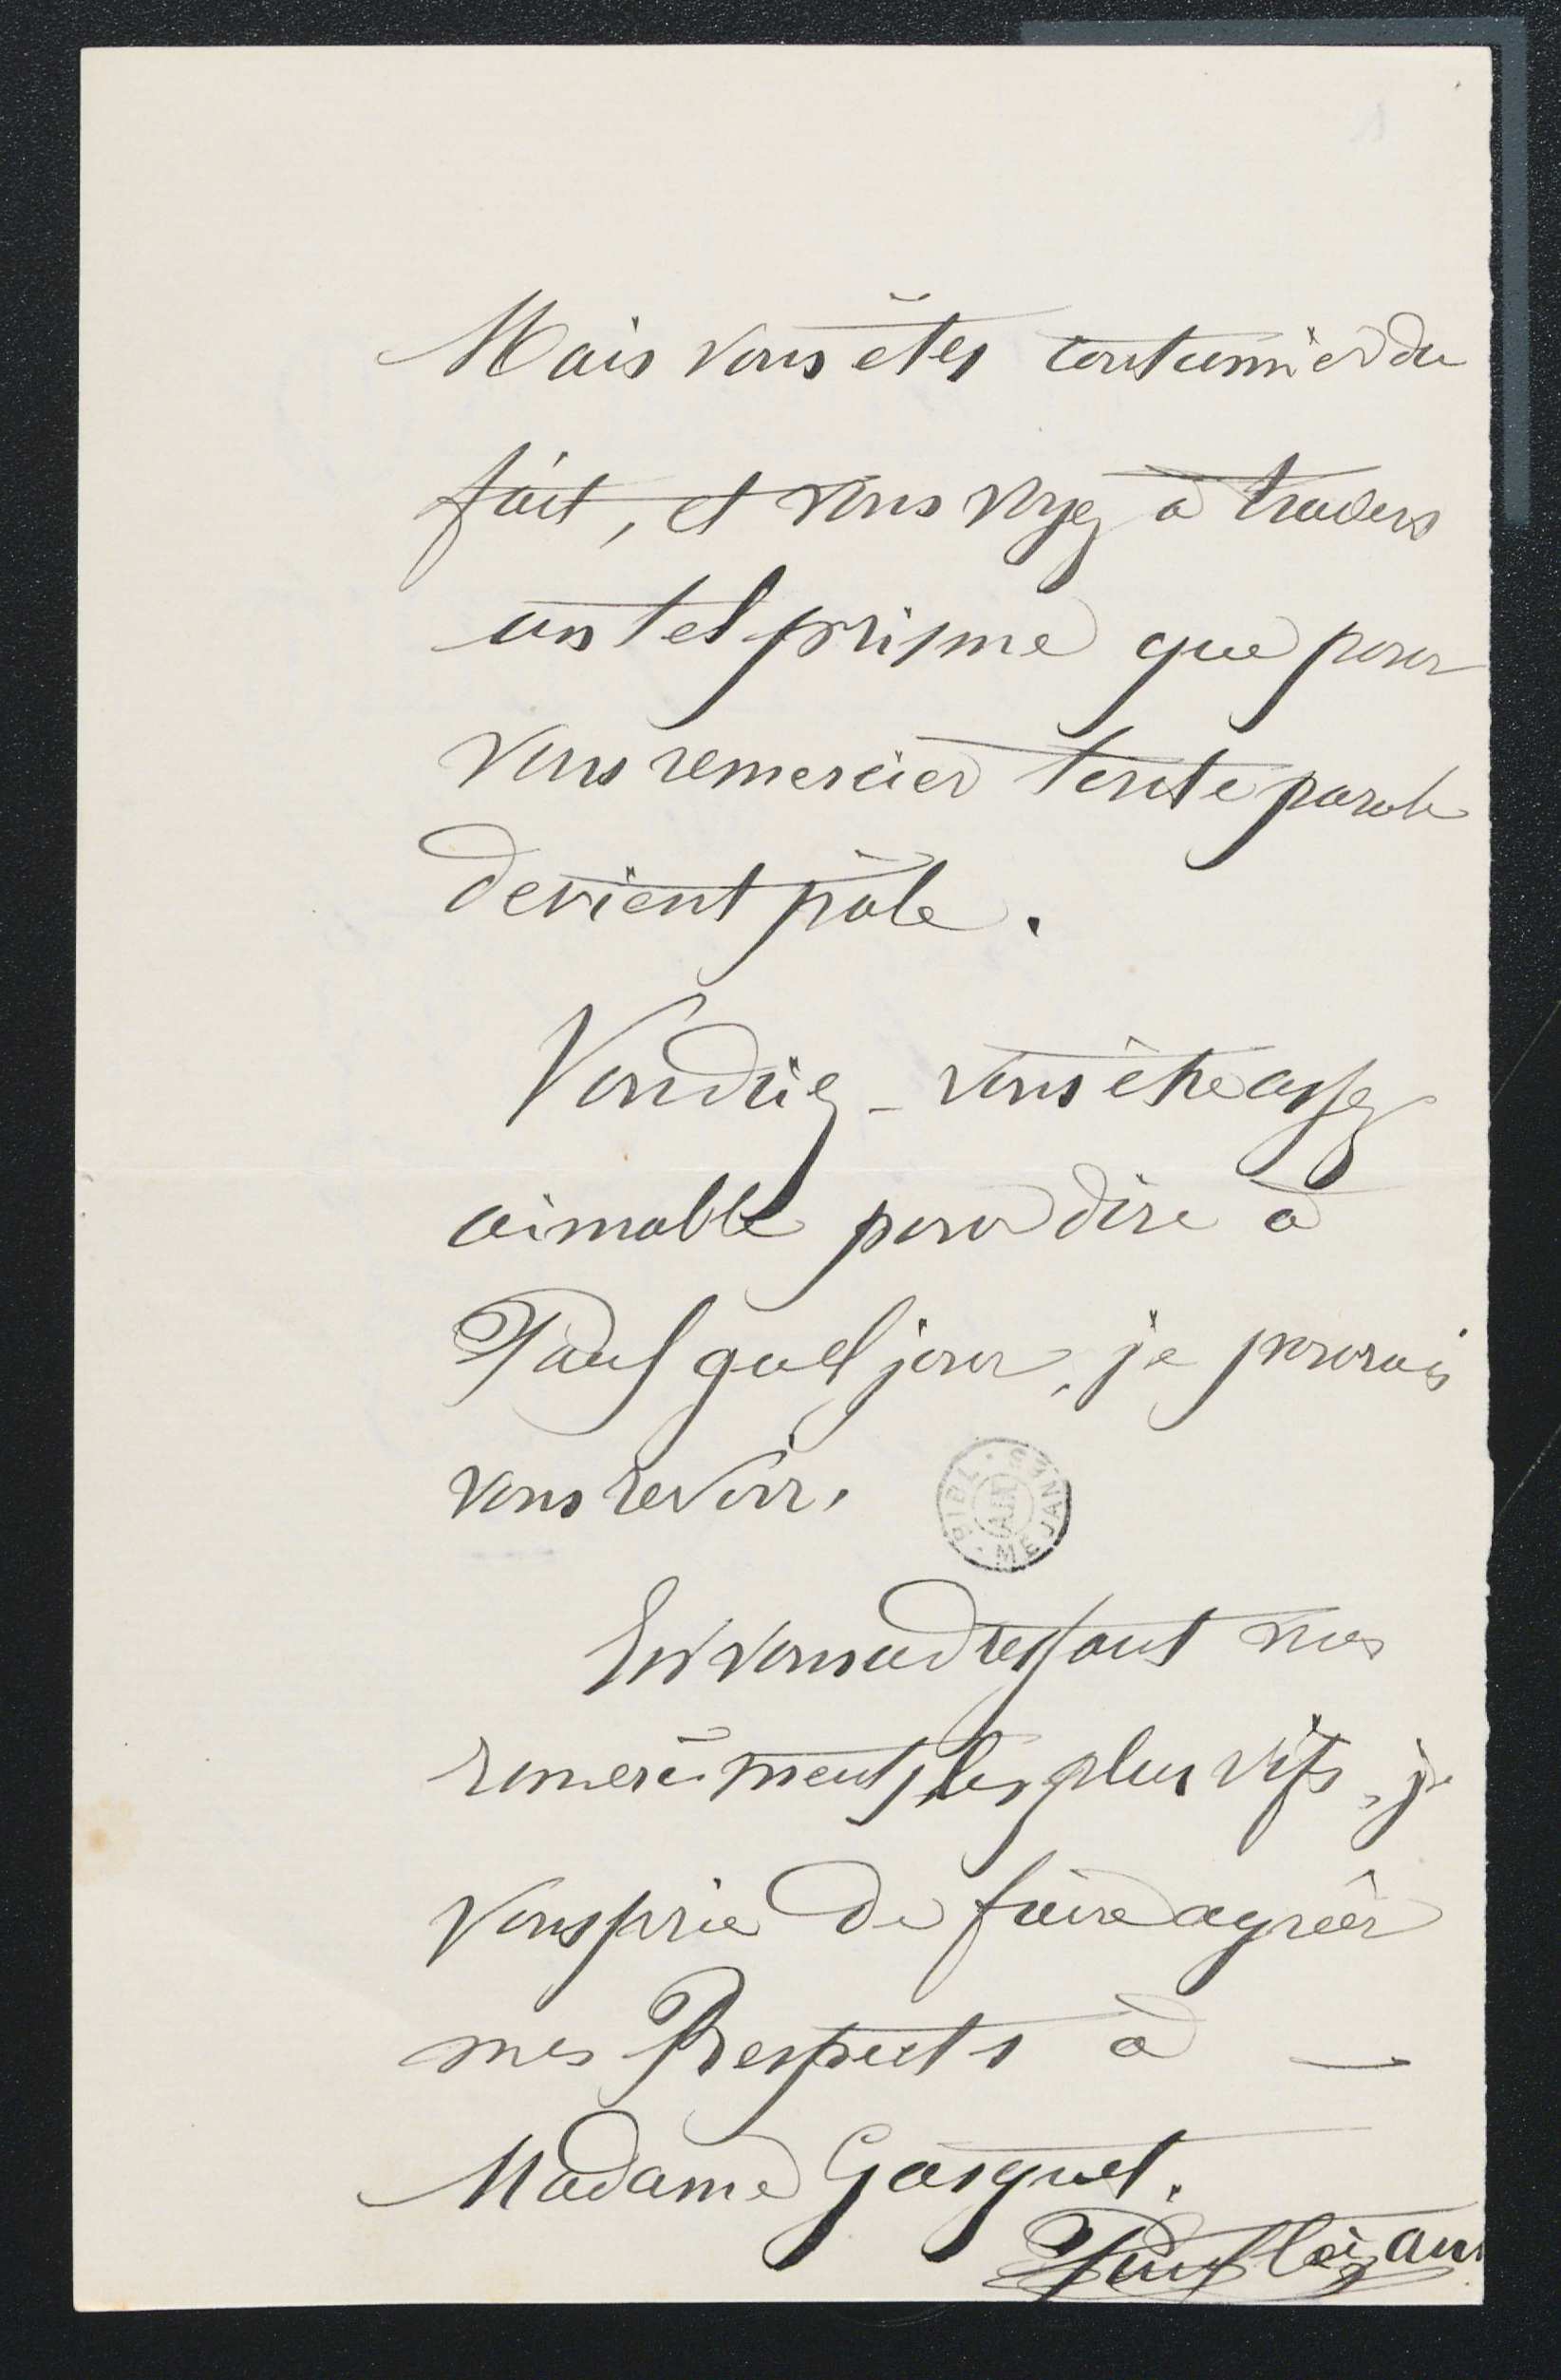 Mais vous êtes coutumier du
fait, et vous voyez à travers
un tel prisme que pour
vous remercier toute parole
devient pâle.
Voudriez-vous être assez
aimable pour dire à
Paul quel jour, je pourais
vous revoir.
BIBL. MÉJANES
AIX
En vous adressant mes
remerciments les plus vifs, je
vous prie de faire agréer
mes Respects à —
Madame Gasquet.
Paul Cézanne